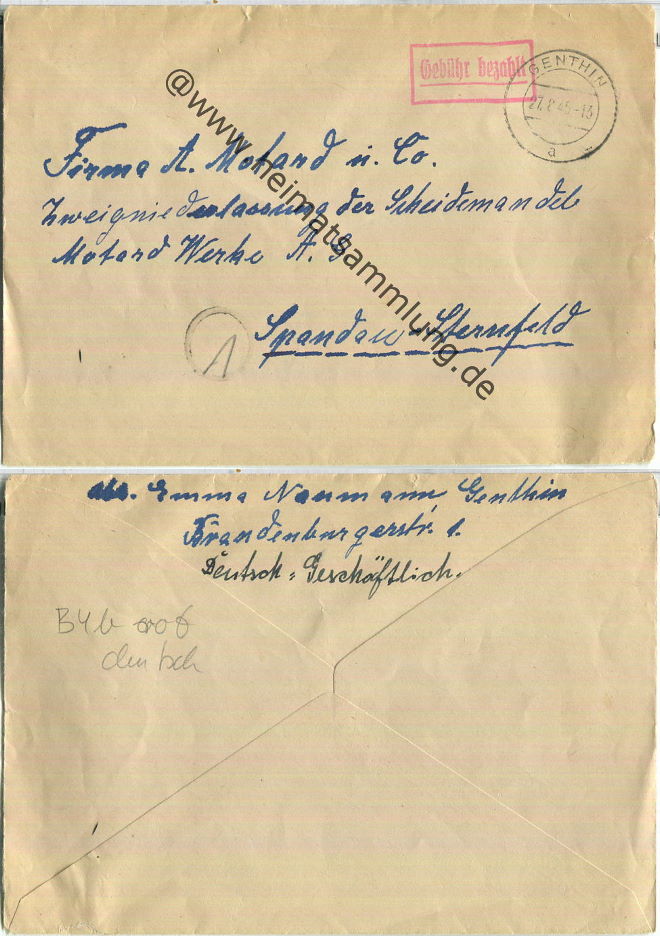 Gebühr bezahlt
GENTHIN
27.8.45.-13
a
@www.heimatsammlung.de
Firma A. Motard u. Co.
Zweigniederlassung der Scheidemandel
Motard Werke A. G.
Spandau-Sternfeld
1
Abs. Emma Naumann, Genthin
Brandenburgerstr. 1.
Deutsch = Geschäftlich.
B4b
deutsch